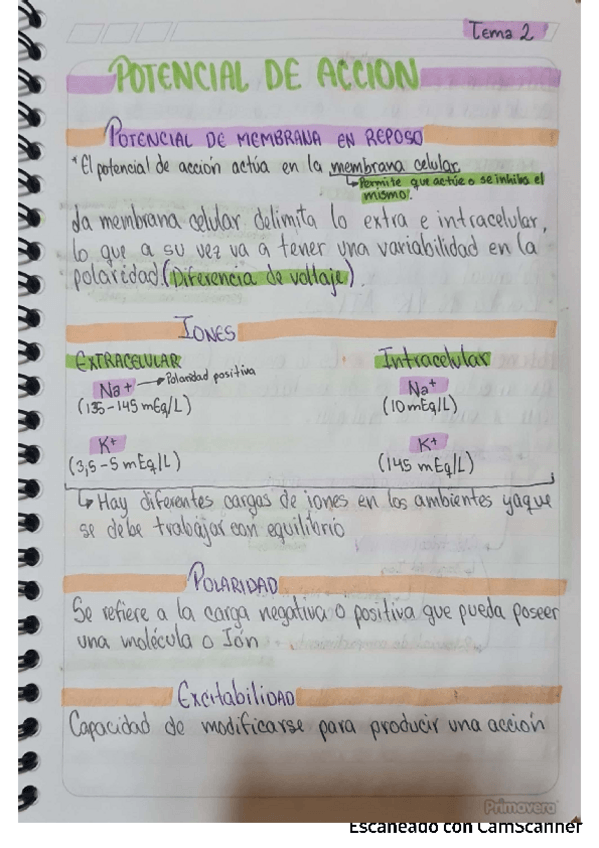 Tema 2
POTENCIAL DE ACCION
POTENCIAL DE MEMBRANA EN REPOSO
*El potencial de acción actúa en la membrana celular
↳Permite que actúe o se inhiba el
mismo.
La membrana celular delimita lo extra e intracelular,
lo que a su vez va a tener una variabilidad en la
polaridad. (Diferencia de voltaje).
IONES
EXTRACELULAR
Na+ → Polaridad positiva
(135-145 mEq/L)
K+
(3,5-5 mEq/L)
Intracelular
Na+
(10 mEq/L)
K+
(145 mEq/L)
↳ Hay diferentes cargas de iones en los ambientes yaque
se debe trabajar con equilibrio
POLARIDAD
Se refiere a la carga negativa o positiva que pueda poseer
una molécula o Ión
ExcitabiliDAD
Capacidad de modificarse para producir una acción
Primavera
Escaneado con CamScanner